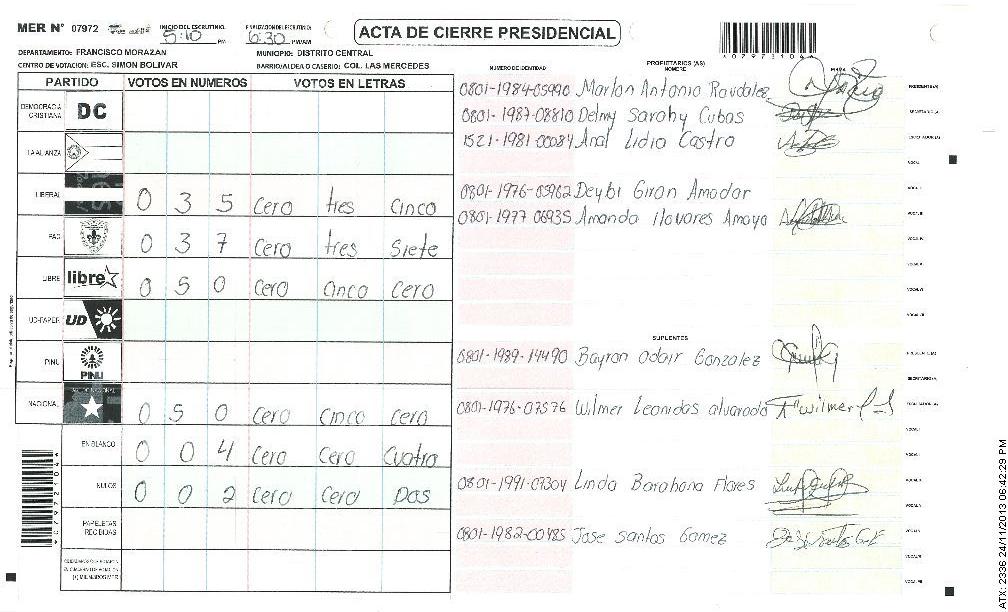 MER N° 07972
INICIO DEL ESCRUTINIO: 5:10 PM
FINALIZACION DEL ESCRUTINIO: 6:30 PM/AM
ACTA DE CIERRE PRESIDENCIAL
DEPARTAMENTO: FRANCISCO MORAZAN
MUNICIPIO: DISTRITO CENTRAL
CENTRO DE VOTACION: ESC. SIMON BOLIVAR
BARRIO/ALDEA O CASERIO: COL. LAS MERCEDES
PARTIDO VOTOS EN NUMEROS VOTOS EN LETRAS
DEMOCRACIA CRISTIANA DC
LA ALIANZA
LIBERAL 0 3 5 Cero tres Cinco
PAC 0 3 7 Cero tres Siete
LIBRE libre 0 5 0 Cero Cinco Cero
UD-FAPER UD
PINU PINU
NACIONAL 0 5 0 Cero Cinco Cero
EN BLANCO 0 0 4 Cero Cero Cuatro
NULOS 0 0 2 Cero Cero Dos
PAPELETAS RECIBIDAS
NUMERO DE IDENTIDAD
PROPIETARIOS (AS)
NOMBRE
FIRMA
0801-1984-05990 Marlon Antonio Raudalez
0801-1987-08810 Delmy Sarahy Cubas
1521-1981-00084 Ana Lidia Castro
0801-1976-05962 Deybi Giron Amador
0801-1977 06935 Amanda Navares Amaya
SUPLENTES
0801-1989-14490 Bayron Odair Gonzalez
0801-1976-07576 Wilmer Leonidas alvarado
0801-1991-07304 Linda Barahona Flores
0801-1982-00485 Jose Santos Gomez
ATX: 2336 24/11/2013 06:42:29 PM